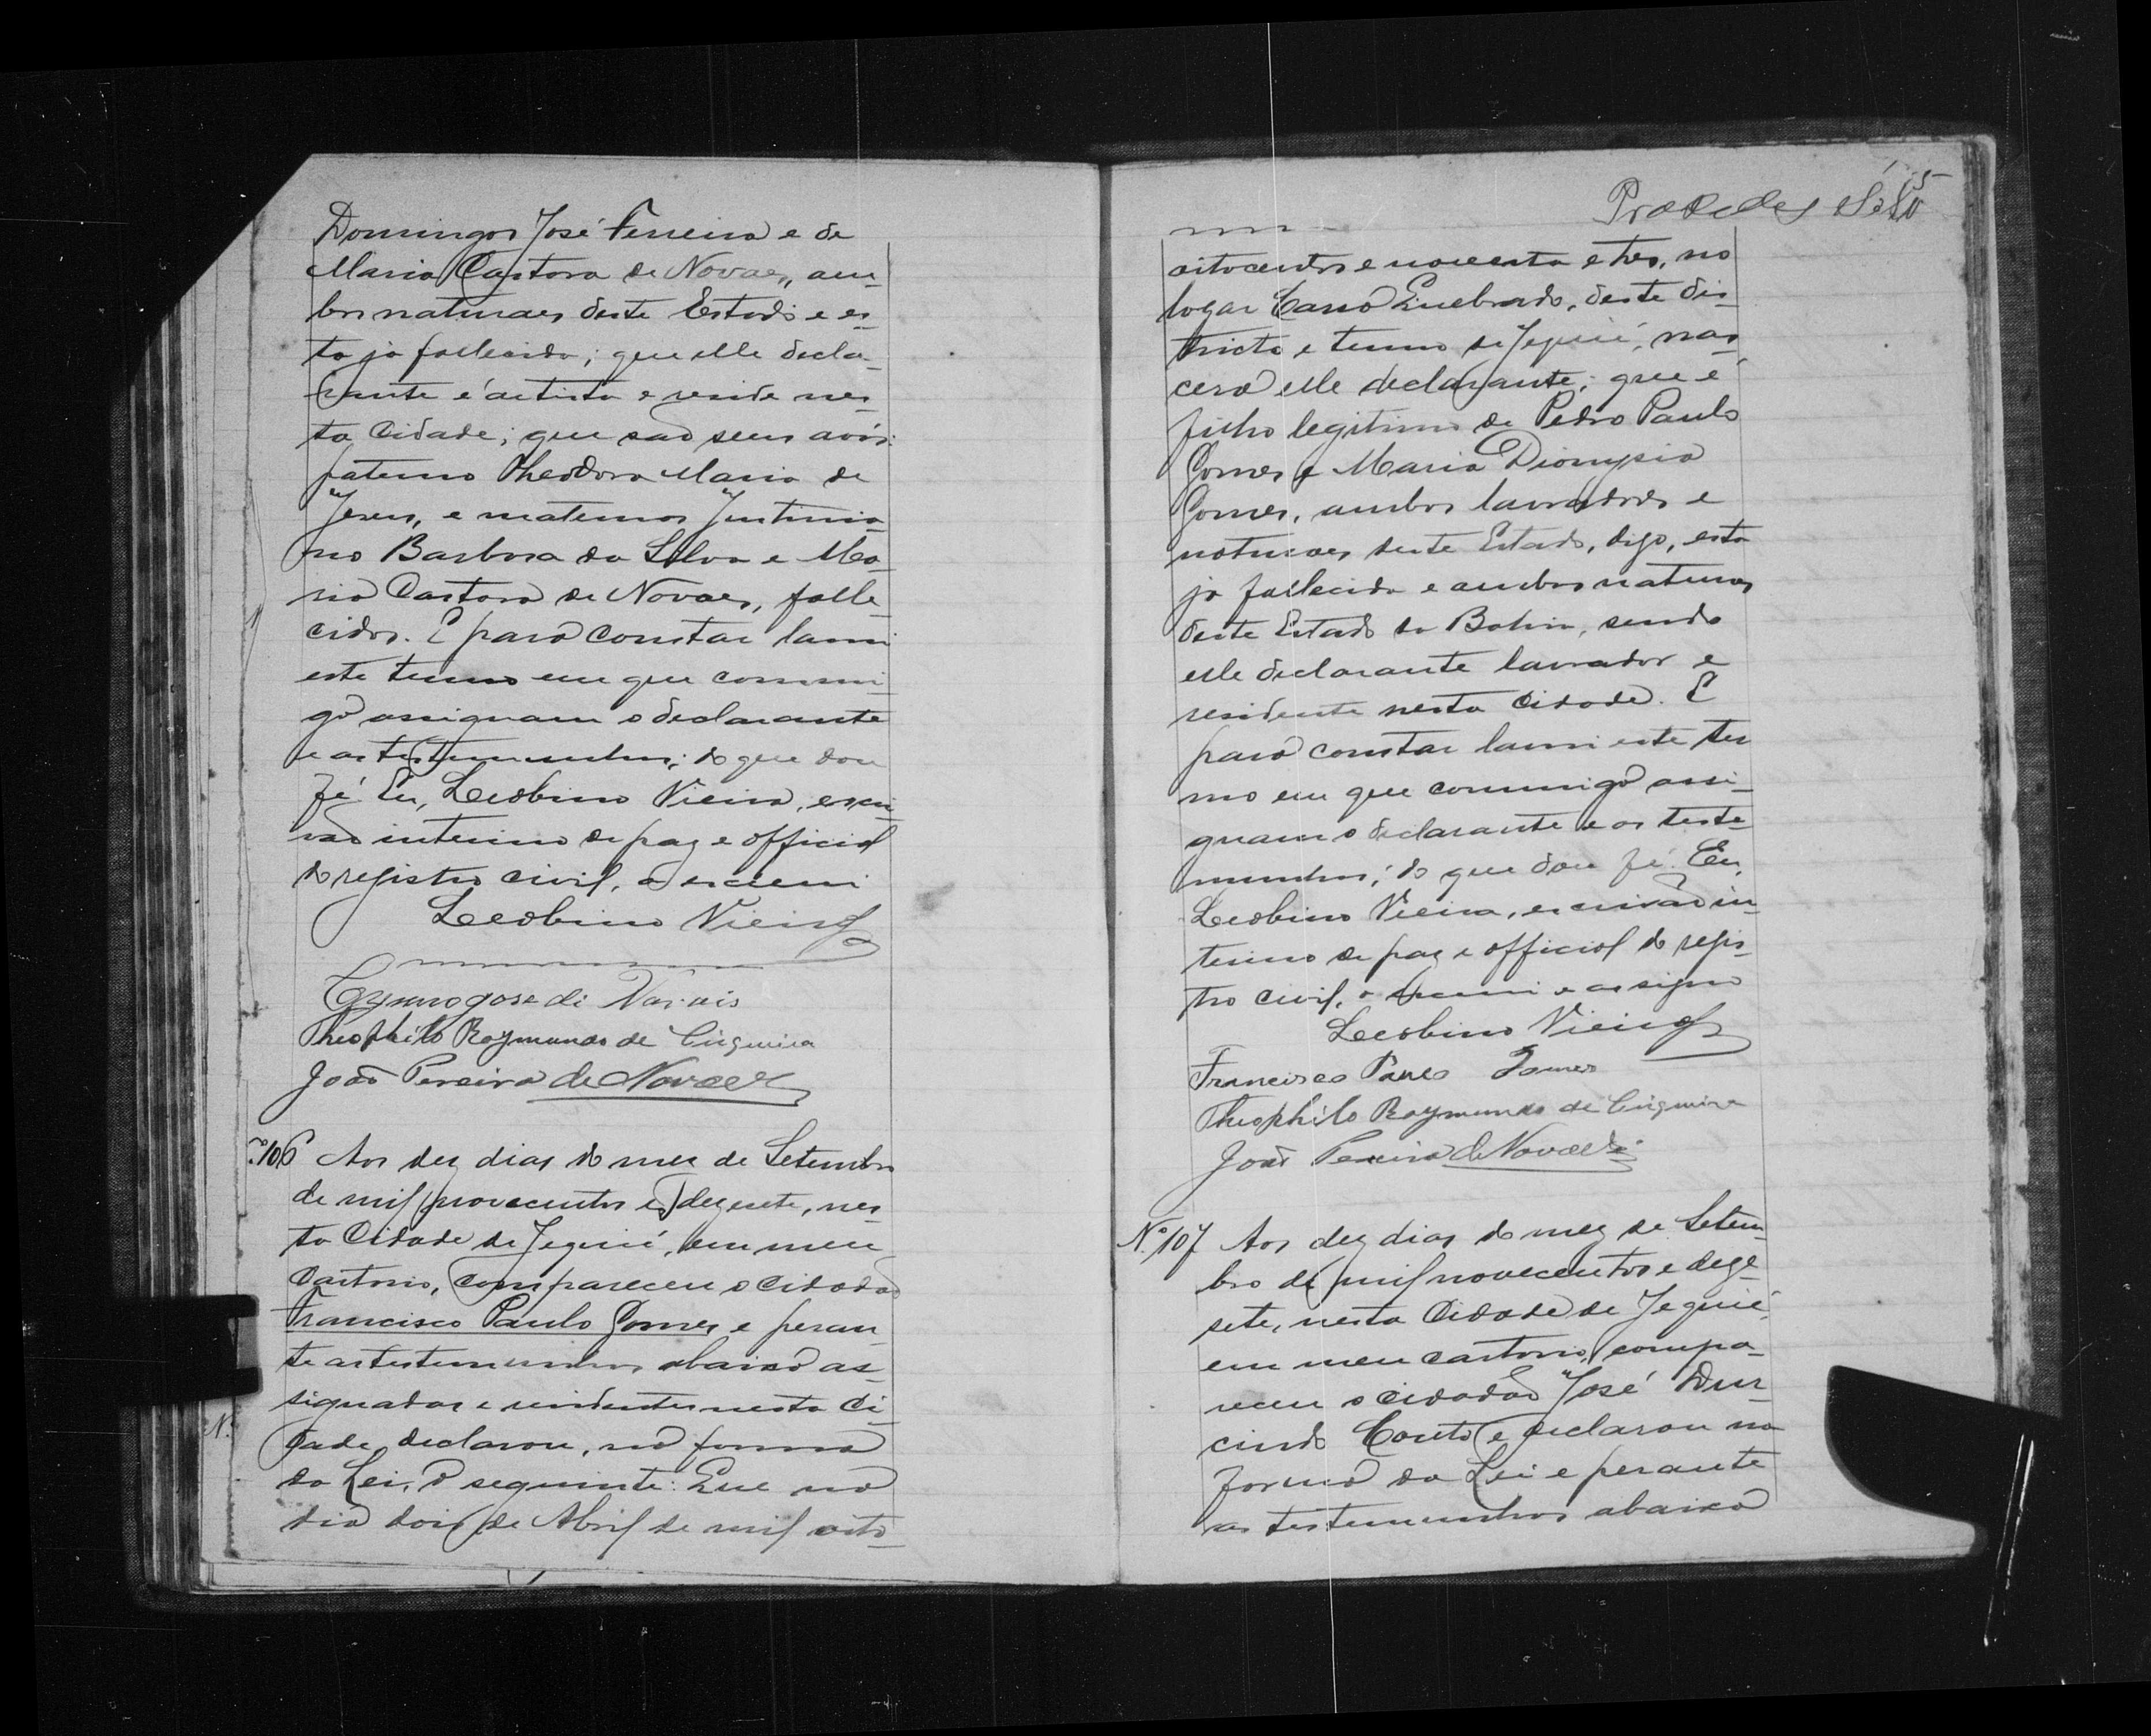 Domingos José Ferreira e de
Maria Castora de Novaes, am-
bos naturaes deste Estado e es-
ta ja fallecida; que elle decla-
rante é artista e reside nes-
ta Cidade; que são seus avós:
paterno Theodora Maria de
Jesus, e maternos Justinia-
no Barbosa da Silva e Ma-
ria Castora de Novaes, falle-
cidos. E para constar lavrei
este termo em que commi-
go assignam o declarante
e as testemunhas; do que dou
fé. Eu, Leobino Vieira, escri-
vão interino de paz e official
do registro civil, o escrevi
Leobino Vieira
de Novais
Theophilo Raymundo de Cirqueira
João Pereira de Novaes
Nº 106 Aos dez dias do mez de Setembro
de mil novecentos e dezesete, nes-
ta Cidade de Jequié, em meu
Cartorio, compareceu o cidadão
Francisco Paulo Gomes e peran-
te as testemunhas abaixo as-
signadas e residentes nesta Ci-
dade, declarou, na forma
da Lei, o seguinte: Que no
dia dois de Abril de mil oito-
N.
oitocentos e noventa e tres, no
logar Casso Quebrado, deste dis-
tricto e termo de Jequié, nas-
cera elle declarante; que é
filho legitimo de Pedro Paulo
Gomes e Maria Dionysia
Gomes, ambos lavradores e
naturaes deste Estado, digo, esta
ja fallecida e ambos naturaes
deste Estado da Bahia, sendo
elle declarante lavrador e
residente nesta Cidade. E
para constar lavrei este ter
mo em que commigo assi-
gnam o declarante e as teste-
munhas; do que dou fé. Eu,
Leobino Vieira, escrivão in-
terino de paz e official do regis-
tro civil, o escrevi e assigno
Leobino Vieira
Francisco Paulo Gomes
Theophilo Raymundo de Cirqueira
João Pereira de Novaes
Nº 107 Aos dez dias do mez de Setem-
bro de mil novecentos e deze-
sete, nesta Cidade de Jequié,
em meu cartorio, compa-
receu o cidadão José Dur-
cindo Couto e declarou na
forma da Lei e perante
as testemunhas abaixo